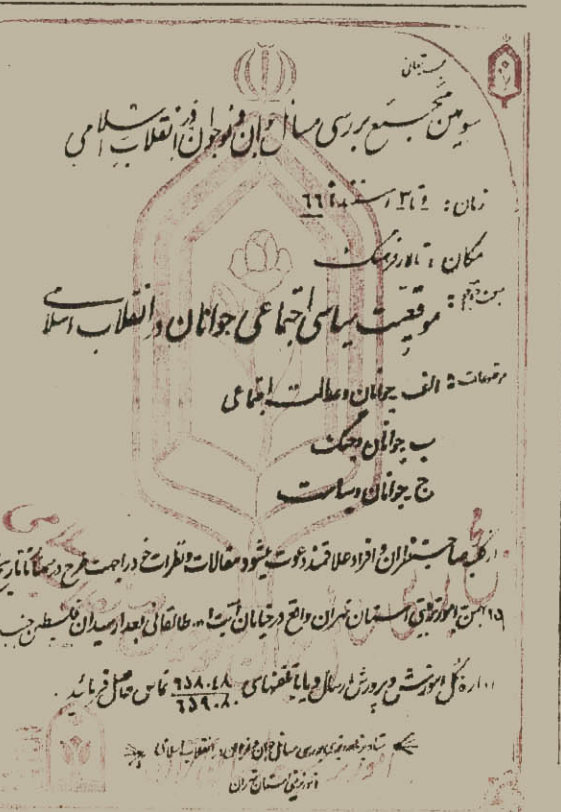 بسمه تعالی
سومین مجمع بررسی مسائل جوان و نوجوان در انقلاب اسلامی
زمان: ۱ تا ۳ اسفند ماه ۶۶
مکان: تالار فرهنگ
موقعیت سیاسی اجتماعی جوانان در انقلاب اسلامی
موضوعات: الف جوانان و عدالت اجتماعی
ب جوانان و جنگ
ج جوانان و سیاست
از کلیه صاحبنظران و افراد علاقمند دعوت میشود مقالات و نظرات خود را جهت طرح در تا تاریخ
۱۵ بهمن به امور تربیتی استان تهران واقع در خیابان آیت ا... طالقانی بعد از میدان فلسطین جنب
اداره کل آموزش و پرورش ارسال و یا با تلفنهای ۶۵۸۰۴۸ ۶۵۹۰۸۰ تماس حاصل فرمائید.
ستاد برنامه ریزی بررسی مسائل جوان و نوجوان در انقلاب اسلامی
امور تربیتی استان تهران